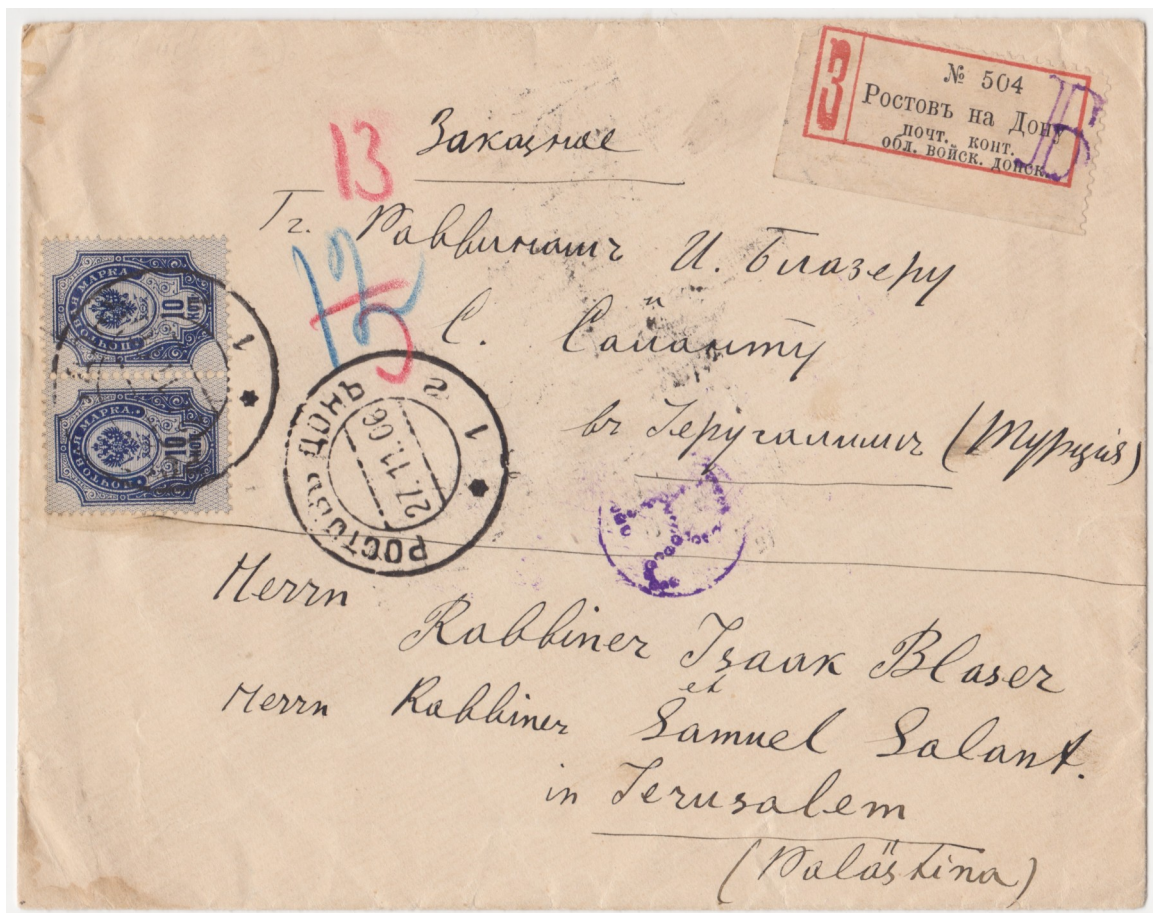 № 504
Ростовъ на Дону
почт. конт.
обл. войск. донск.
З
Б
13
Заказное
Гг. Раввинамъ И. Блазеру
и
С. Саланту
въ Іерусалимъ (Турція)
12
5
ПОЧТОВАЯ МАРКА
10
КОП
ПОЧТОВАЯ МАРКА
10
1
РОСТОВЪ ДОНЪ
27.11.06
1
2
Herrn
Rabbiner Isaak Blaser
et
Herrn Rabbiner Samuel Salant.
in Jerusalem
(Palästina)